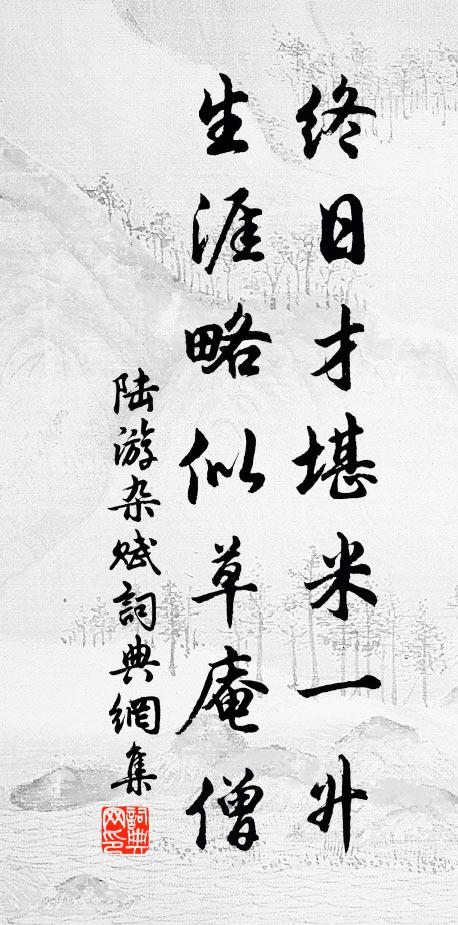 终日才堪米一升
生涯略似草庵僧
陆游杂赋詞典網集
詞典网印